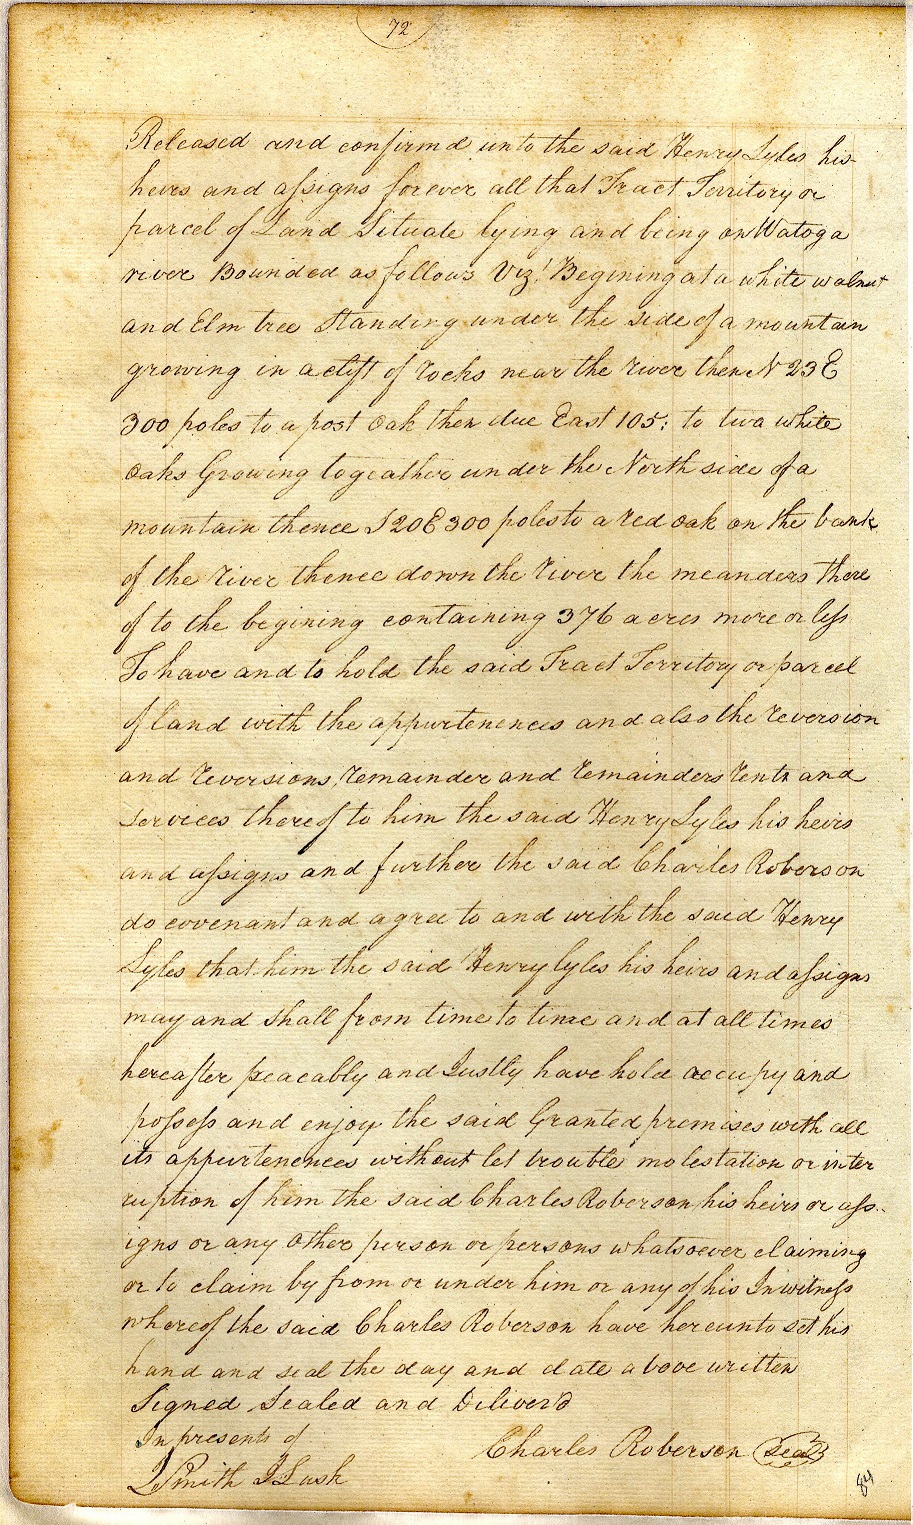 72
Released and confirmd unto the said Henry Lyles his
heirs and assigns forever all that Tract Territory or
parcel of Land Situate lying and being on Watoga
river Bounded as follows Viz! Begining at a white walnut
and Elm tree Standing under the side of a mountain
growing in a clift of rocks near the river then N 23 E
300 poles to a post oak then due East 105: to two white
oaks Growing togeather under the North side of a
mountain thence S 20 E 300 poles to a red oak on the bank
of the river thence down the river the meanders there
of to the begining containing 376 acres more or less
To have and to hold the said Tract Territory or parcel
of land with the appurtenences and also the reversion
and reversions, remainder and remainders rents and
services thereof to him the said Henry Lyles his heirs
and assigns and further the said Charles Roberson
do covenant and agree to and with the said Henry
Lyles that him the said Henry lyles his heirs and assigns
may and shall from time to time and at all times
hereafter peacably and Justly have hold accupy and
possess and enjoy the said Granted premises with all
its appurtenences without let trouble molestation or inter
ruption of him the said Charles Roberson his heirs or ass..
igns or any other person or persons whatsoever claiming
or to claim by from or under him or any of his In witness
whereof the said Charles Roberson have hereunto set his
hand and seal the day and date above written
Signed Sealed and Deliverd
In presents of
Charles Roberson Seal
Smith J Lash
84